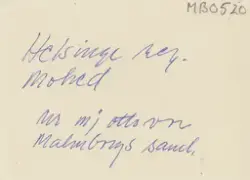 MB0520
Helsinge reg.
Mohed
ur mj ottovon
Malmborgs saml.